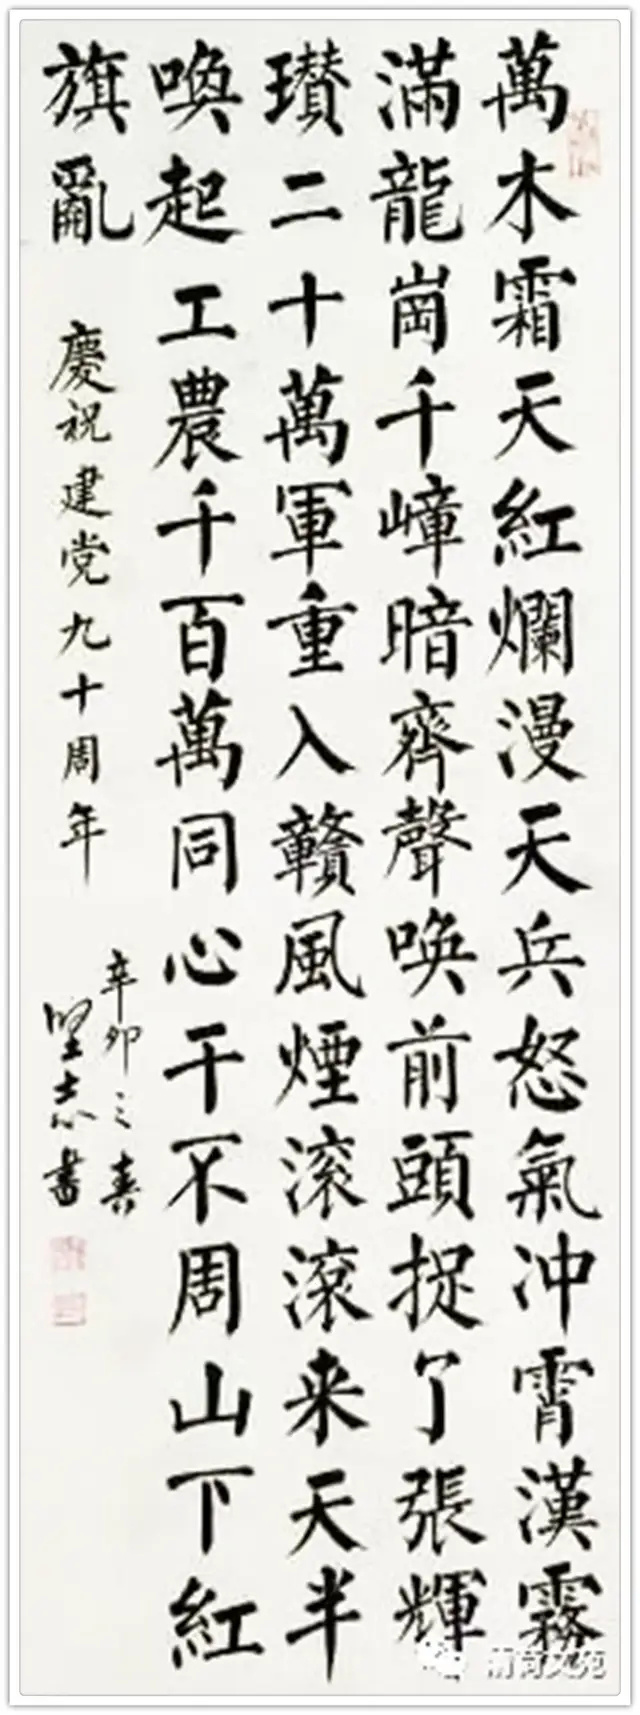 萬木霜天紅爛漫天兵怒氣冲霄漢霧
滿龍崗千嶂暗齊聲喚前頭捉了張輝
瓚二十萬軍重入贛風煙滚滚来天半
喚起工農千百萬同心干不周山下紅
旗亂
慶祝建党九十周年
辛卯之春
堅志書